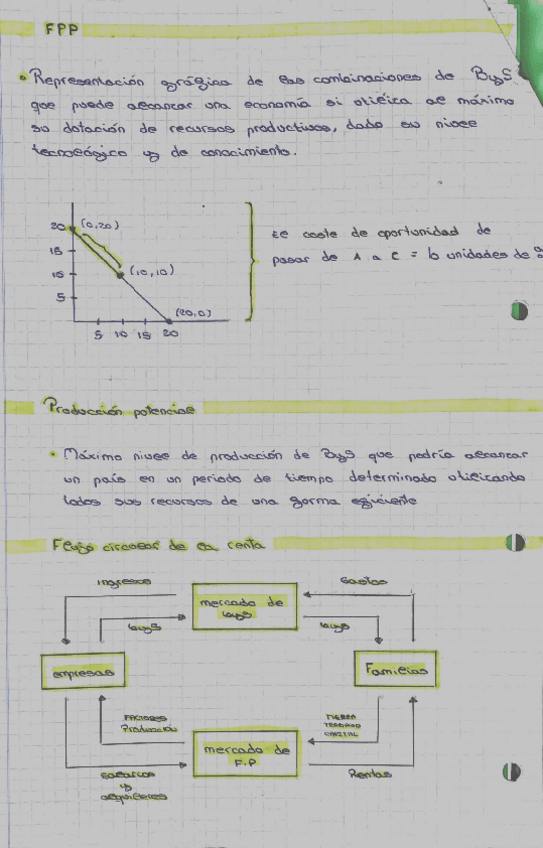 FPP
Representación gráfica de las combinaciones de ByS
que puede alcanzar una economía si utiliza al máximo
su dotación de recursos productivos, dado su nivel
tecnológico y de conocimiento.
20 (0,20)
15
15 (10,10)
5
(20,0)
5 10 15 20
El coste de oportunidad de
pasar de A a C = 10 unidades de
Producción potencial
Máximo nivel de producción de ByS que podría alcanzar
un país en un periodo de tiempo determinado utilizando
todos sus recursos de una forma eficiente
Flujo circular de la renta
Ingresos
Gastos
mercado de
byS
byS
byS
empresas
Familias
FACTORES
Producción
TIERRA
TRABAJO
CAPITAL
mercado de
F.P
Salarios
y
alquileres
Rentas